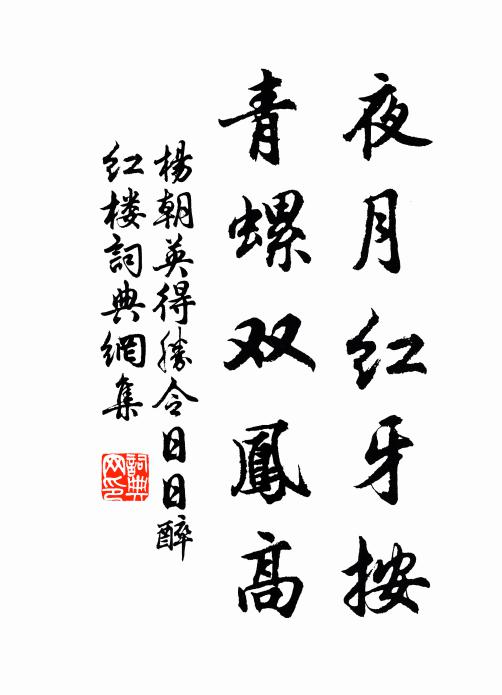 夜月红牙按
青螺双鳳高
楊朝英得勝令日日醉
红楼詞典網集
詞典
网印